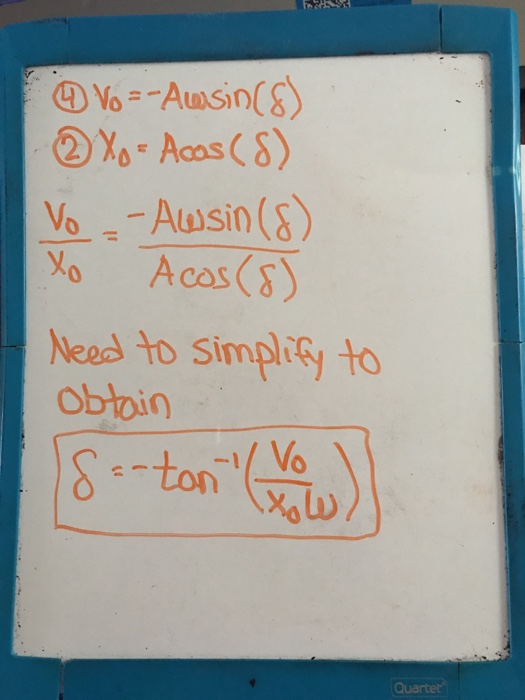 ④ V₀ = -Aωsin(δ)
② X₀ = Acos(δ)
V₀/X₀ = -Aωsin(δ)/Acos(δ)
Need to simplify to
obtain
δ = -tan⁻¹(V₀/X₀ω)
Quartet